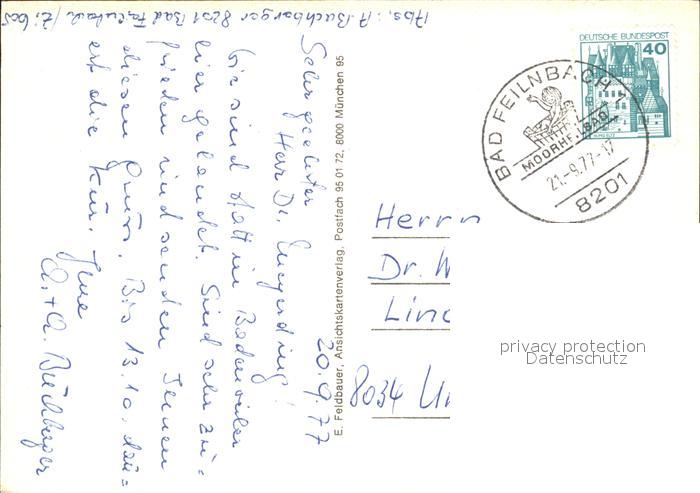 Abs.: A. Buchberger 8201 Bad Feilnbach /
20.9.77
Sehr geehrter
Herr Dr.
Wir sind statt in Badenweiler
hier gelandet. Sind sehr zu=
frieden und senden Ihnen
diesen Gruss. Bis 13.10. dau=
ert die Kur. Ihre
A. + A. Buchberger
E. Feldbauer, Ansichtskartenverlag, Postfach 95 01 72, 8000 München 95
DEUTSCHE BUNDESPOST
40
BURG ELTZ
BAD FEILNBACH 1
MOORHEILBAD
21.-9.77-17
8201
Herrn
Dr.
8034
privacy protection
Datenschutz